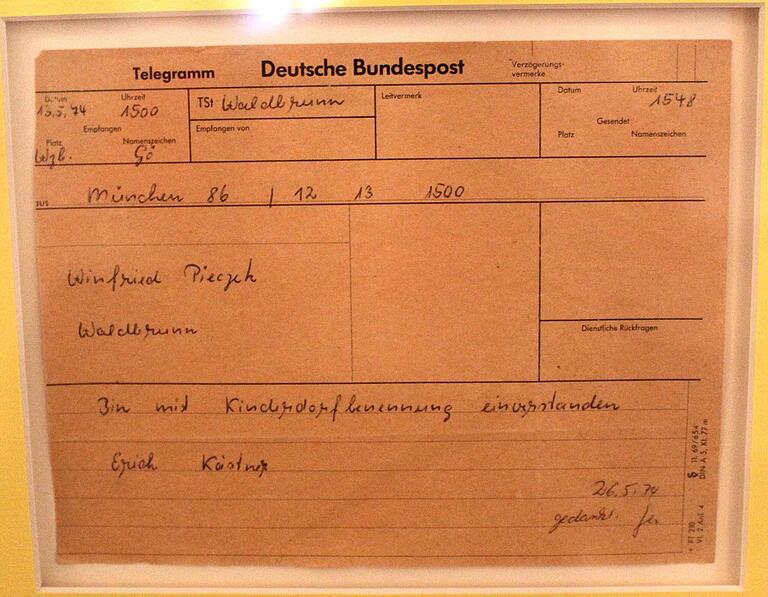 Telegramm Deutsche Bundespost Verzögerungs-
vermerke
Datum Uhrzeit
13.5.74 1500
Empfangen
Platz Namenszeichen
Wzb. Gö
TSt Waldbrunn
Empfangen von
Leitvermerk
Datum Uhrzeit
1548
Gesendet
Platz Namenszeichen
aus München 86 / 12 13 1500
Winfried Pieczek
Waldbrunn
Dienstliche Rückfragen
Bin mit Kinderdorfbenennung einverstanden
Erich Kästner
26.5.74
gedankt.
§ 11. 69/654
DIN A 5, Kl. 77 m
+ FT 210
VI, 2 Anl. 4